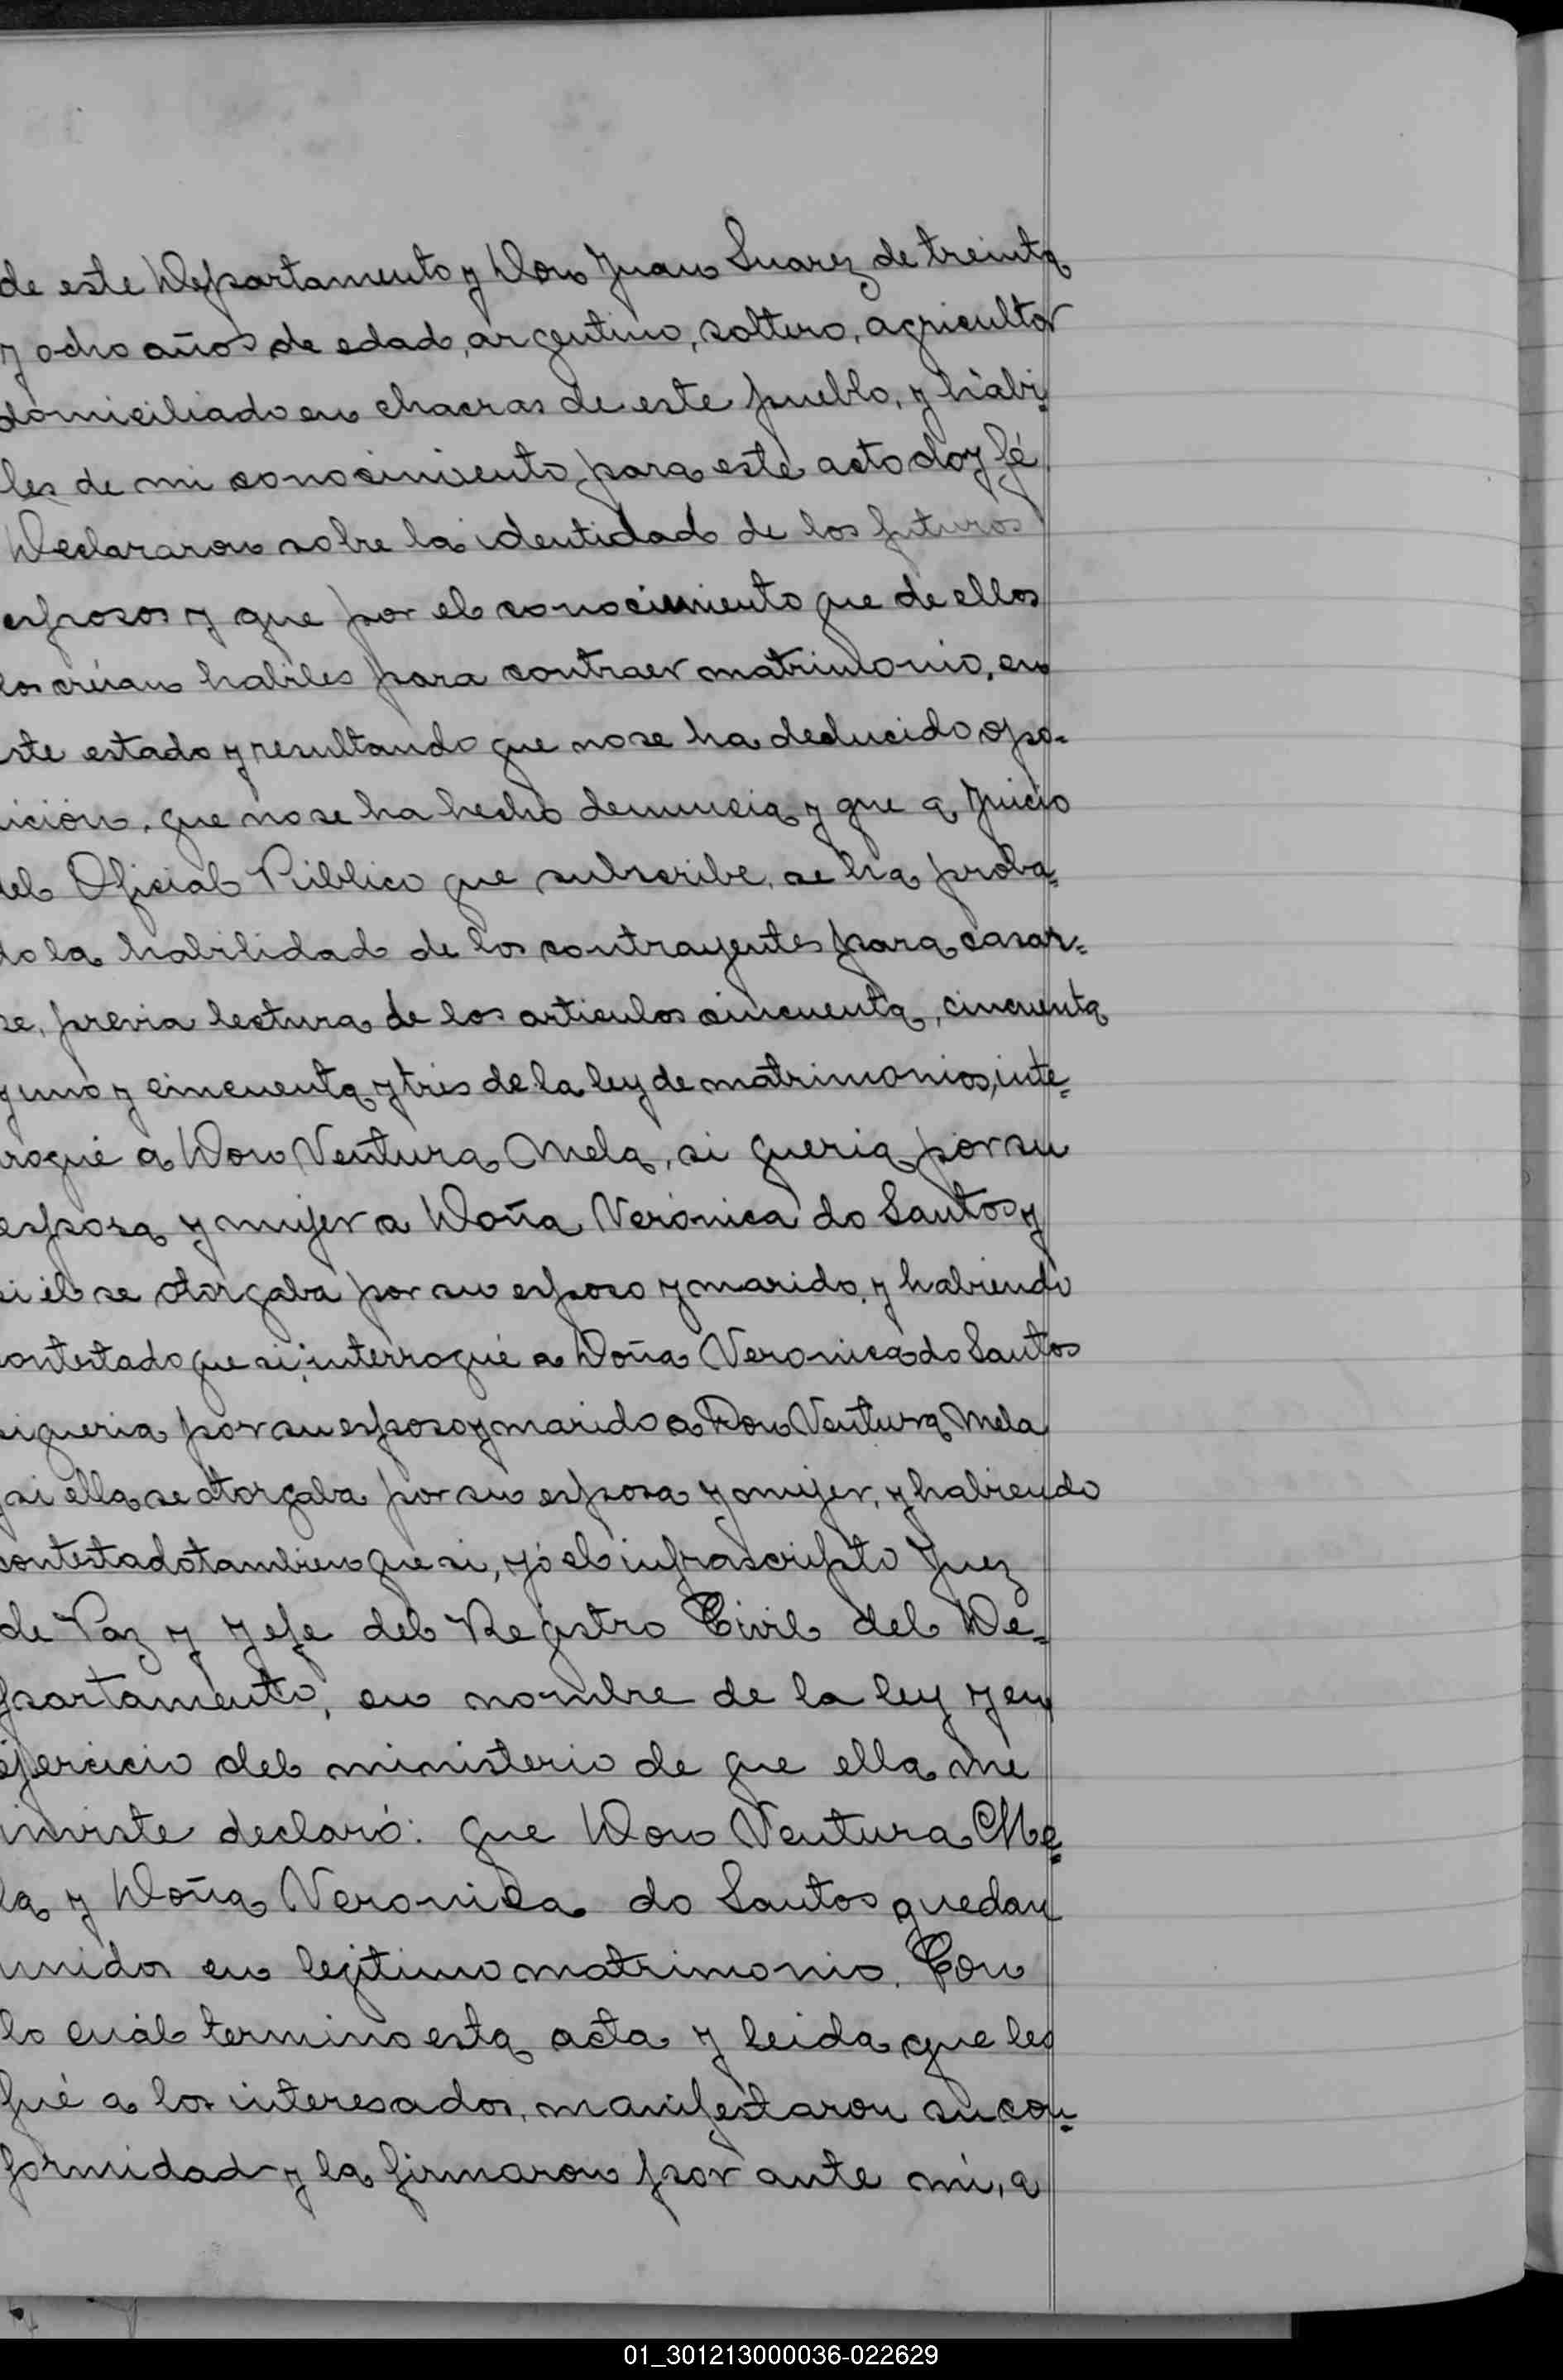 de este Departamento y Don Juan Suarez de treinta
y ocho años de edad, argentino, soltero, agricultor
domiciliado en chacras de este pueblo, y hábi-
les de mi conocimiento para este acto doy fé
Declararon sobre la identidad de los futuros
esposos y que por el conocimiento que de ellos
los creían habiles para contraer matrimonio, en
ste estado y resultando que no se ha deducido opo-
ición, que no se ha hecho denuncia y que a juicio
del Oficial Público que subscribe, se ha proba=
do la habilidad de los contrayentes para casar=
se, previa lectura de los articulos cincuenta, cincuenta
y uno y cincuenta y tres de la ley de matrimonios, inte=
rogué a Don Ventura Mela, si queria por su
esposa y mujer a Doña Verónica do Santos y
si él se otorgaba por su esposo y marido, y habiendo
contestado que si, interrogué a Doña Veronica do Santos
si queria por su esposo y marido a Don Ventura Mela
si ella se otorgaba por su esposa y mujer, y habiendo
contestado tambien que si, yó el infrascripto Juez
de Paz y Jefe del Registro Civil del De=
partamento, en nombre de la ley y en
ejercicio del ministerio de que ella me
inviste declaró: que Don Ventura Me=
la y Doña Veronica do Santos quedan
unidos en legitimo matrimonio. Con
lo cuál termino esta acta y leida que les
fué a los interesados, manifestaron su con=
formidad y la firmaron por ante mi, a
01_301213000036-022629